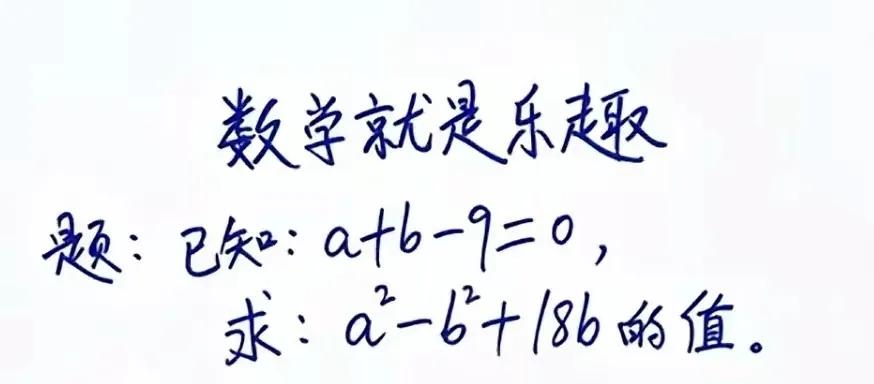 数学就是乐趣
题：已知：a+b-9=0，
求：a²-b²+18b的值。